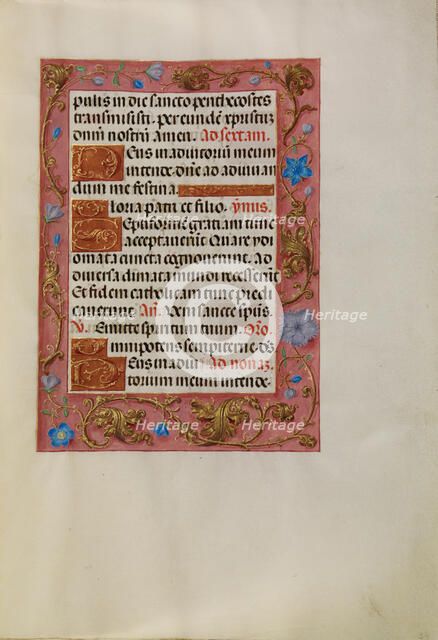 pulis in die sancto penthecostes
transmisisti. per eundē xpistuʒ
dnm nostrū Amen. Ad sextam.
Deus in adiutoriū meum
intende. Dne ad adiuuan
dum me festina.
Gloria patri et filio. ymus.
Septiformē gratiam tunc
acceptauerūt Quare ydi
omata cuncta cognouerunt. Ad
diuersa climata mundi recesserūt
Et fidem catholicam tunc predi
cauerunt. Añ. Veni sancte spūs.
V. Emitte spiritum tuum. Oro.
Omnipotens sempiterne ds
Deus in adiu. Ad nonaʒ.
torium meum intende.
Heritage
Heritage
Heritage
Heritage
Heritage
Heritage
Heritage
Heritage